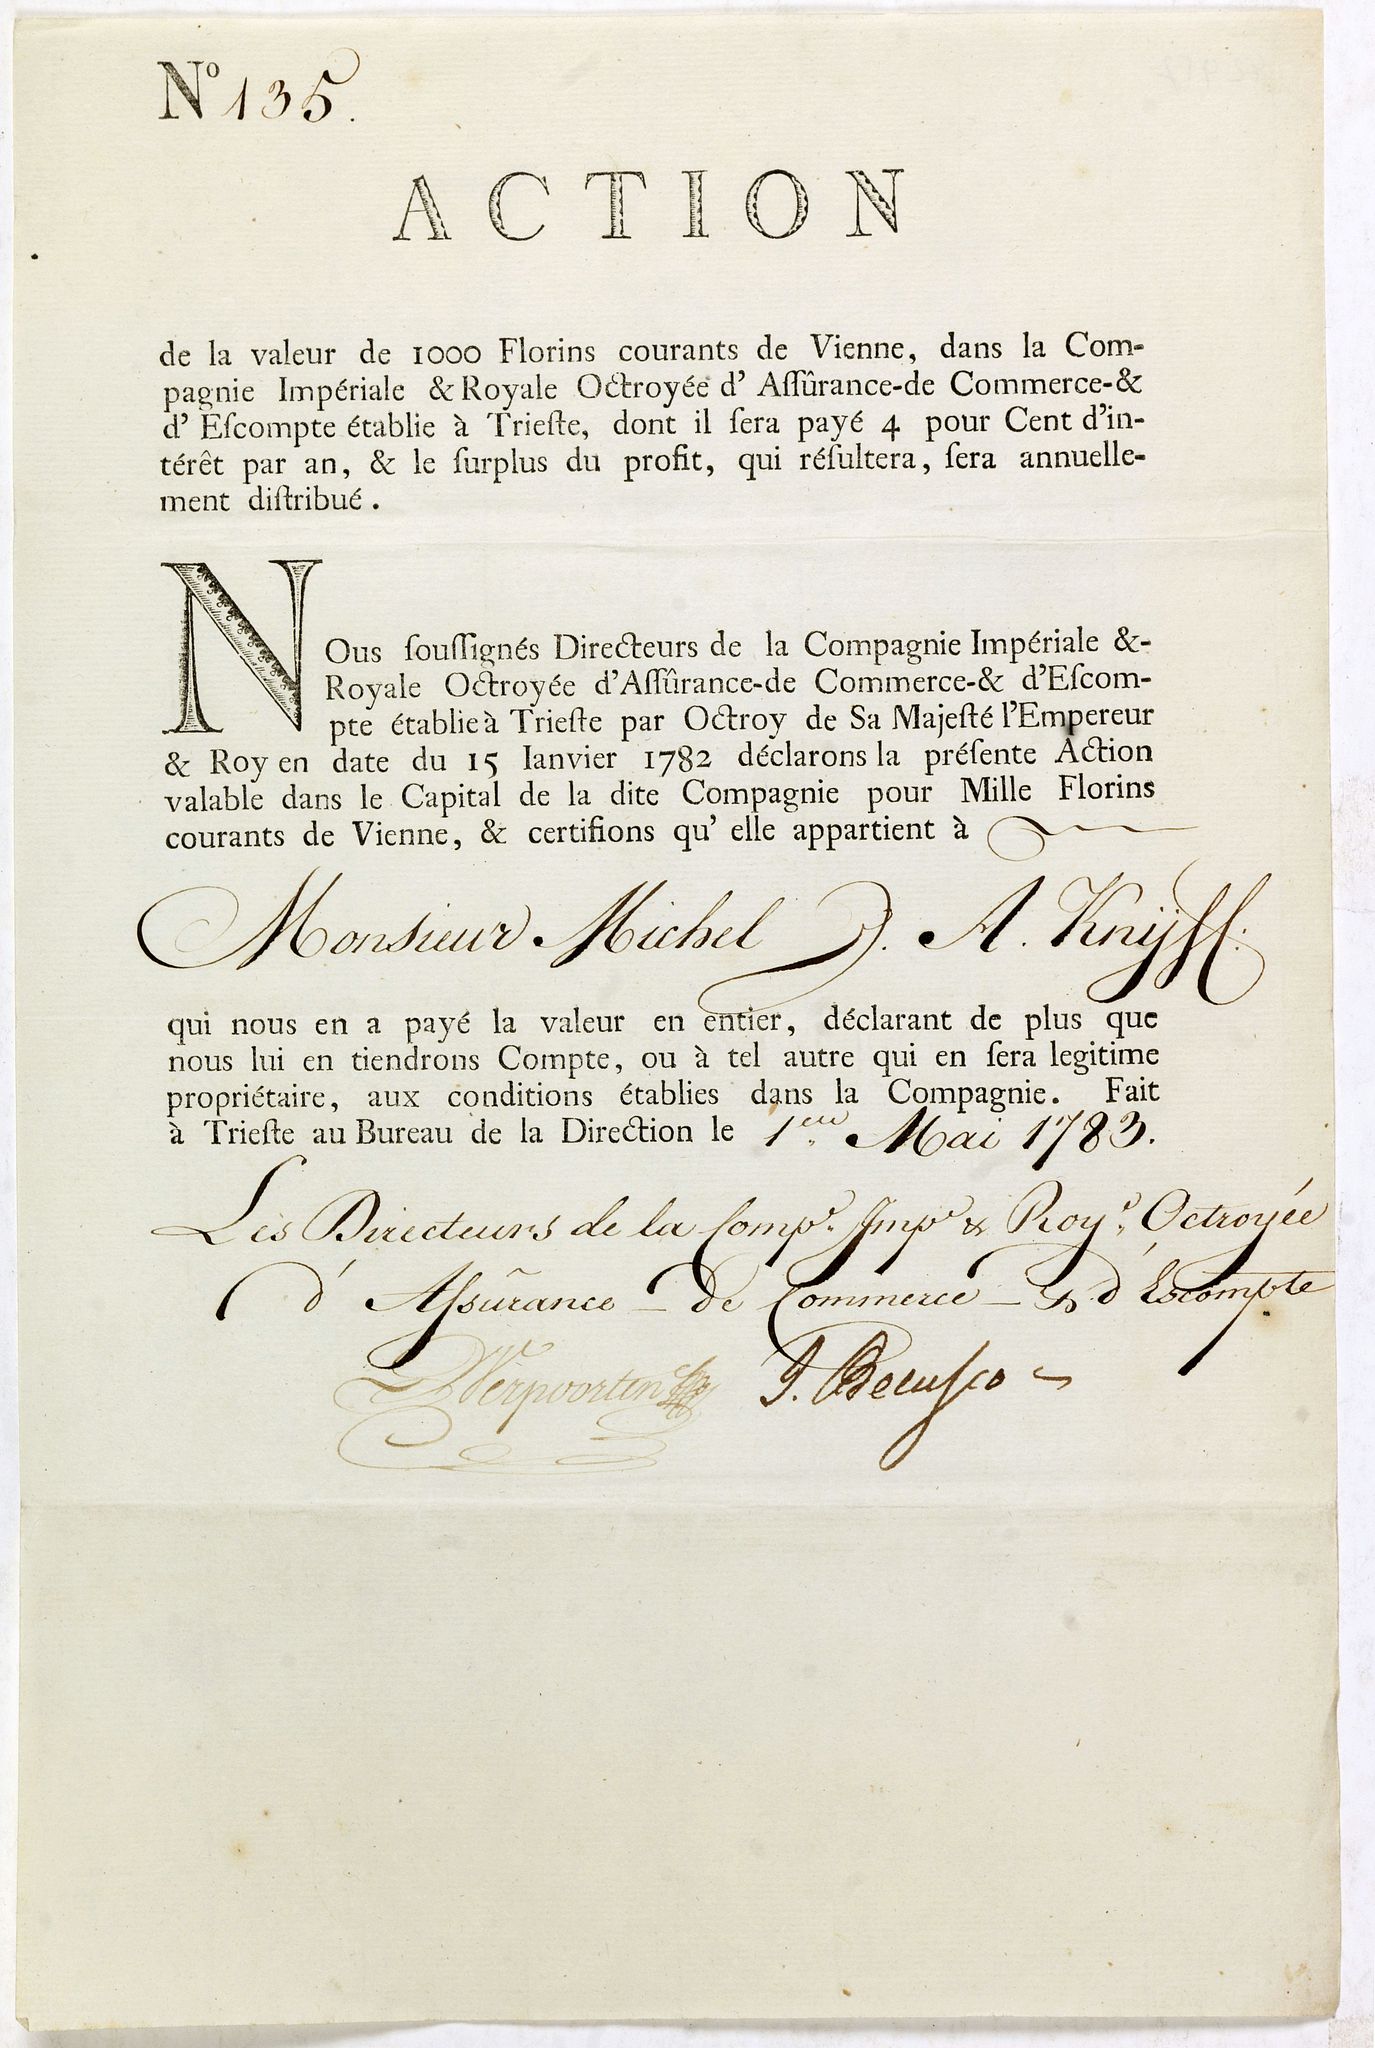 Nº 135.
ACTION
de la valeur de 1000 Florins courants de Vienne, dans la Com-
pagnie Impériale & Royale Octroyée d' Aſſûrance-de Commerce-&
d' Eſcompte établie à Trieſte, dont il ſera payé 4 pour Cent d'in-
térêt par an, & le ſurplus du profit, qui réſultera, ſera annuelle-
ment diſtribué.
NOus ſouſſignés Directeurs de la Compagnie Impériale &-
Royale Octroyée d'Aſſûrance-de Commerce-& d'Eſcom-
pte établie à Trieſte par Octroy de Sa Majeſté l'Empereur
& Roy en date du 15 Ianvier 1782 déclarons la préſente Action
valable dans le Capital de la dite Compagnie pour Mille Florins
courants de Vienne, & certifions qu' elle appartient à
Monsieur Michel J. A. Knijff.
qui nous en a payé la valeur en entier, déclarant de plus que
nous lui en tiendrons Compte, ou à tel autre qui en ſera legitime
propriétaire, aux conditions établies dans la Compagnie. Fait
à Trieſte au Bureau de la Direction le 1er Mai 1783.
Les Directeurs de la Compe. Impe & Roye. Octroyée
d' Aſsûrance - de Commerce - & d' Escompte
Verpoorten